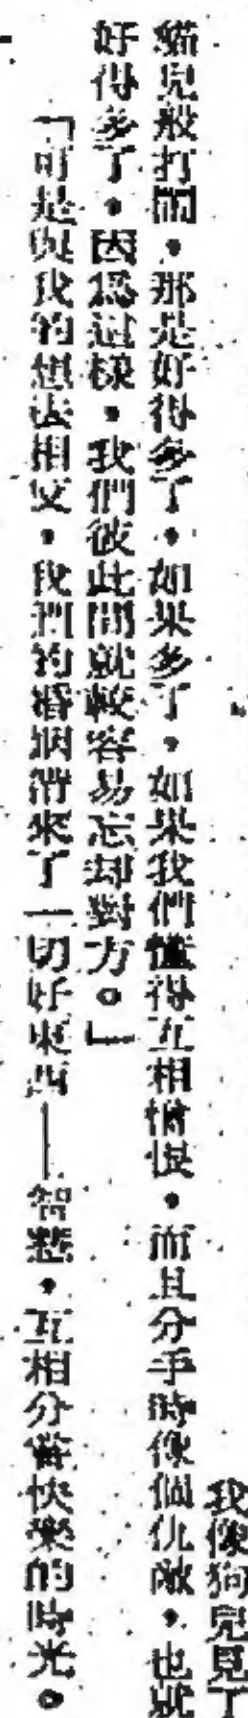 我像狗兒見了
貓兒般打鬧，那是好得多了，如果多了，如果我們懂得互相憎恨，而且分手時像個仇敵，也就
好得多了，因為這樣，我們彼此間就較容易忘却對方。」
「可是與我的想法相反，我們的婚姻帶來了一切好東西——智慧，互相分享快樂的時光。